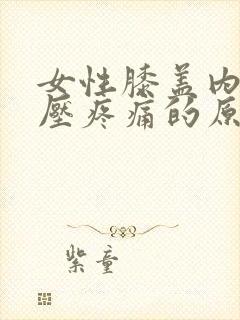 女性膝盖内
壓疼痛的原
紫童